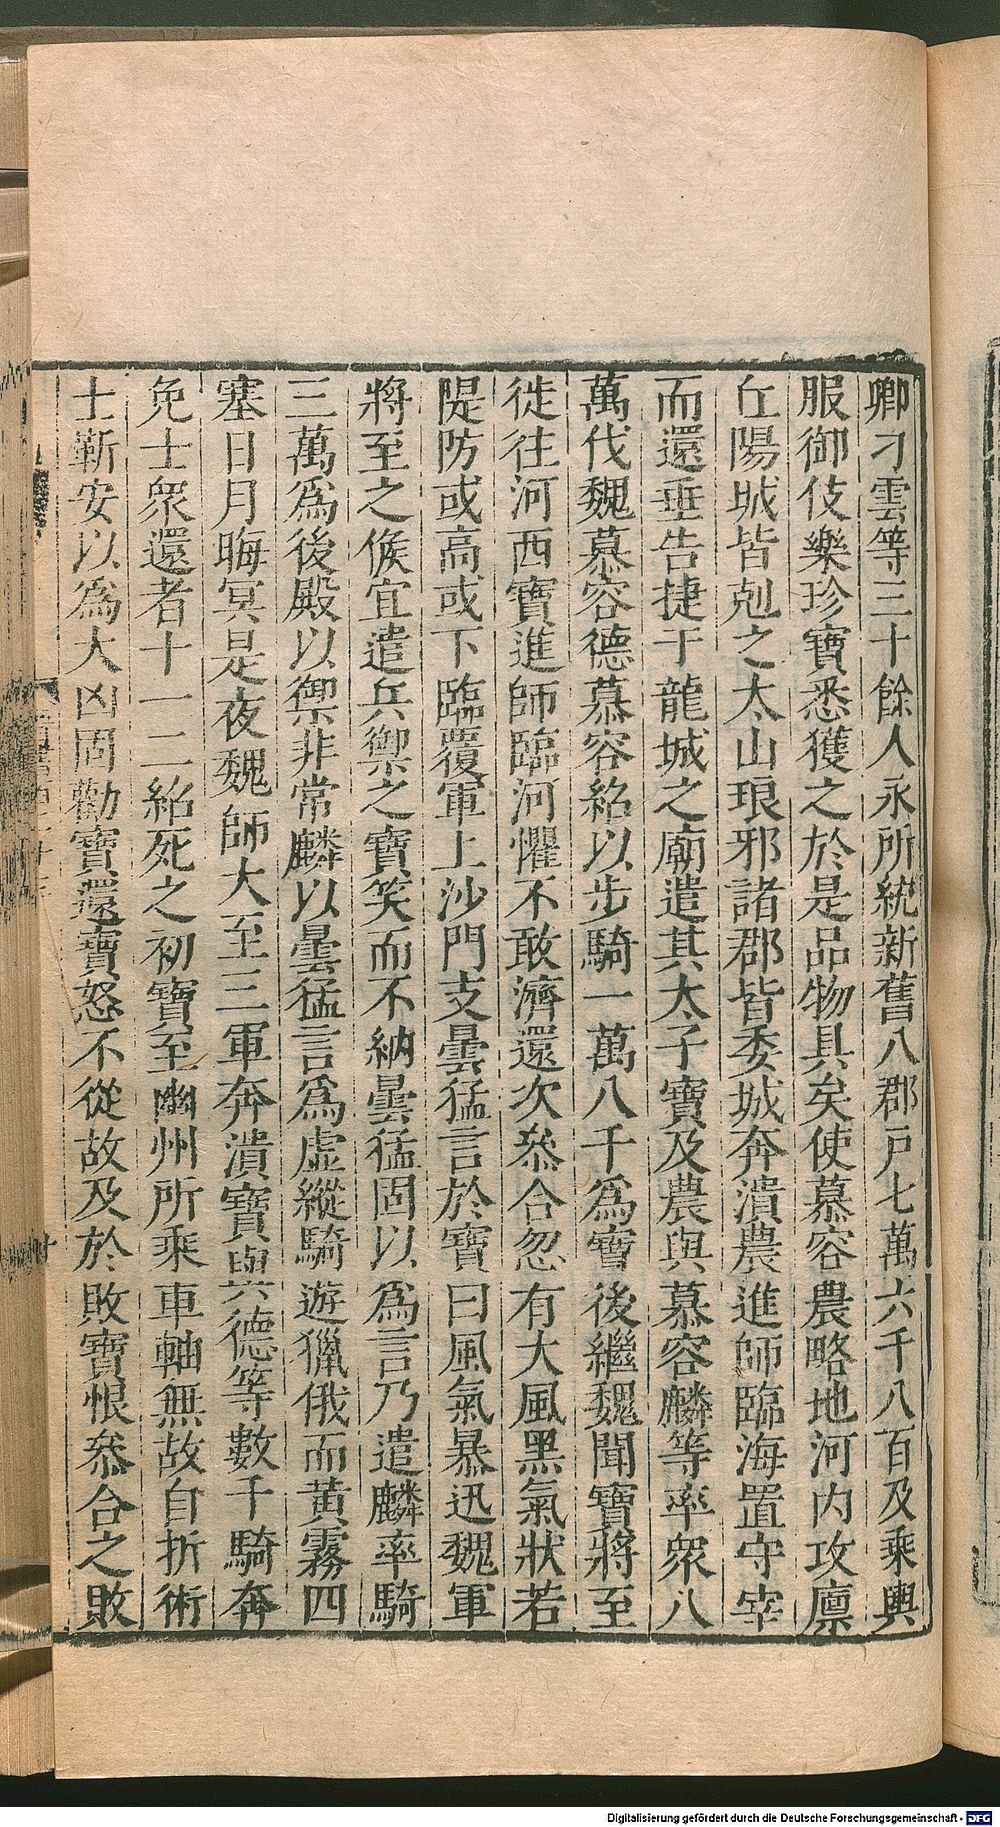 卿刁雲等三十餘人永所統新舊八郡戸七萬六千八百及乘輿
服御伎樂珍寶悉獲之於是品物具矣使慕容農略地河内攻廪
丘陽城皆剋之太山琅邪諸郡皆委城奔潰農進師臨海置守宰
而還垂告捷于龍城之廟遣其太子寶及農與慕容麟等率衆八
萬伐魏慕容德慕容紹以步騎一萬八千爲寶後繼魏聞寶將至
徙往河西寶進師臨河懼不敢濟還次叅合忽有大風黑氣狀若
隄防或高或下臨覆軍上沙門支曇猛言於寶曰風氣暴迅魏軍
將至之候宜遣兵禦之寶笑而不納曇猛固以爲言乃遣麟率騎
三萬爲後殿以禦非常麟以曇猛言爲虛縱騎遊獵俄而黃霧四
塞日月晦冥是夜魏師大至三軍奔潰寶與德等數千騎奔
免士衆還者十一二紹死之初寶至幽州所乘車軸無故自折術
士靳安以爲大凶固勸寶還寶怒不從故及於敗寶恨叅合之敗
Digitalisierung gefördert durch die Deutsche Forschungsgemeinschaft - DFG